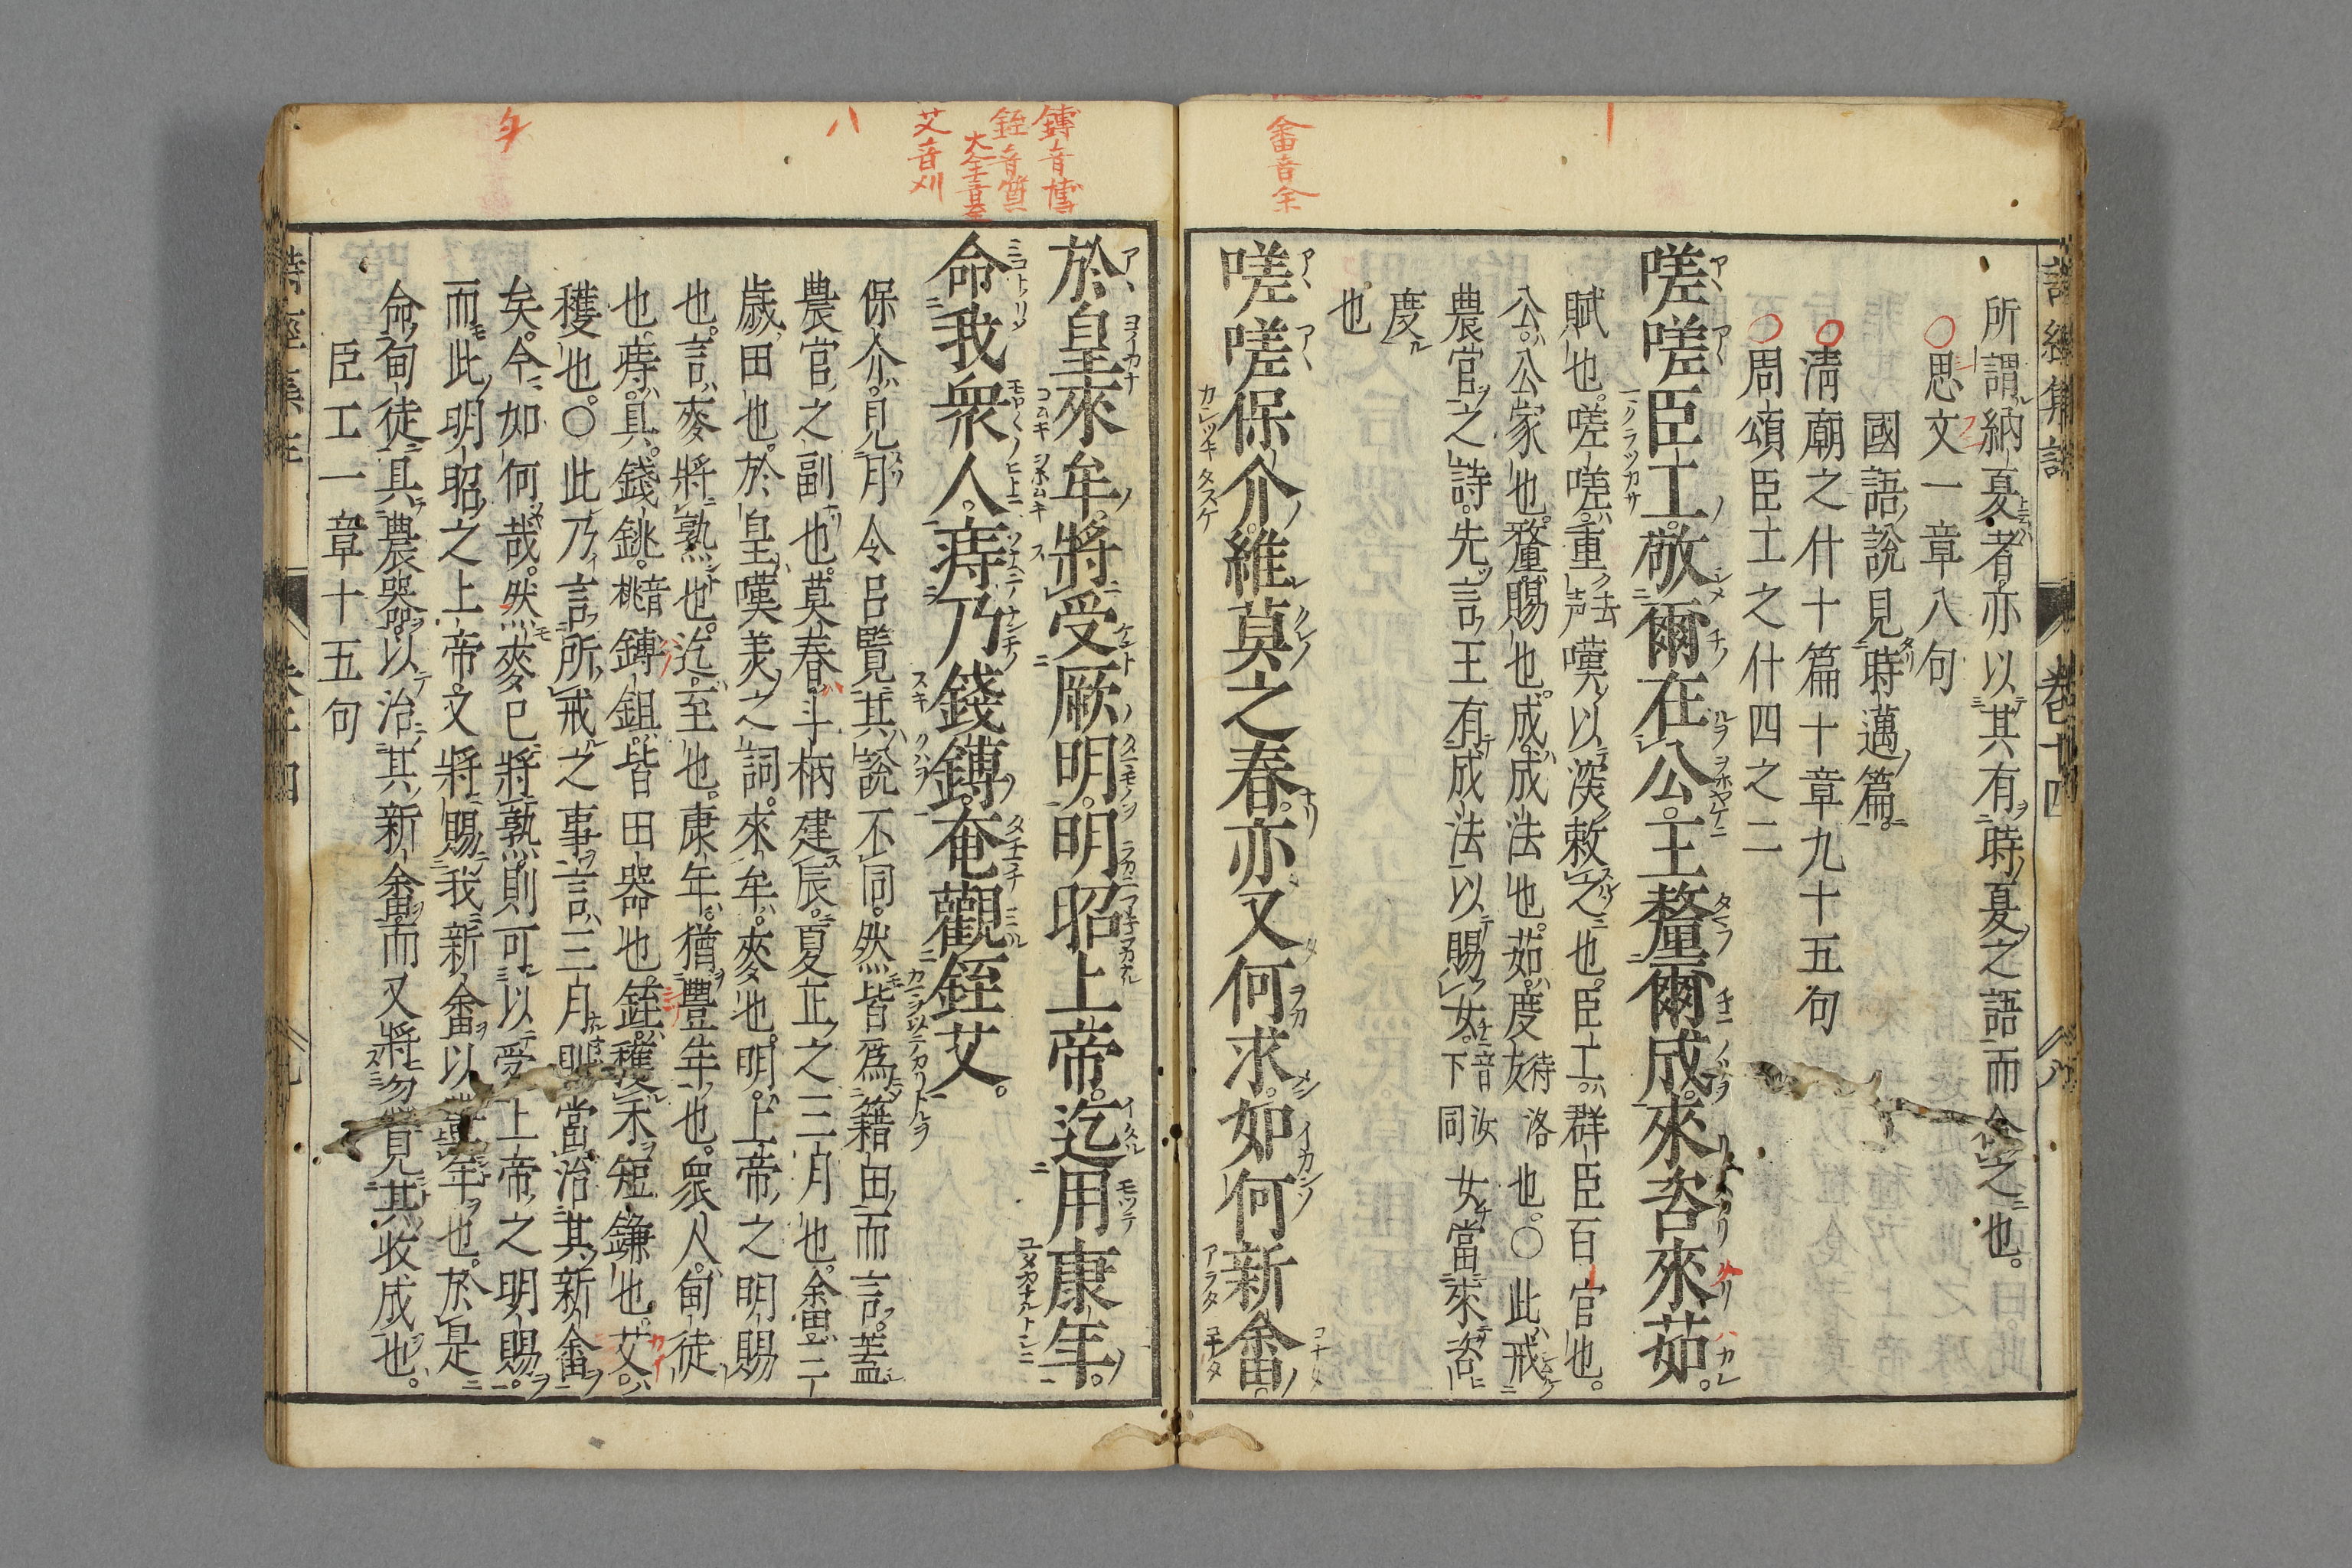 畬音余
所謂納夏者亦以其有時夏之語而命之也。
○思文一章八句
國語說見時邁篇。
清廟之什十篇十章九十五句
○周頌臣工之什四之二
嗟嗟臣工。敬爾在公。王釐爾成。來咨來茹。
賦也。嗟嗟重去声嘆以深敕之也。臣工群臣百官也。
公。公家也。釐賜也。成成法也。茹。度待洛友也。○此戒
農官之詩。先言王有成法以賜女。音汝下同女當來咨
度
也
嗟嗟保介。維莫之春。亦又何求。如何新畬。
鎛音博
銍音質
大全音至
艾音刈
八
於皇來牟。將受厥明。明昭上帝。迄用康年。
命我衆人。庤乃錢鎛。奄觀銍艾。
保介。見月令呂覽其說不同。然皆爲籍田而言。蓋
農官之副也。莫春。斗柄建辰。夏正之三月也。畬三
歲田也。於皇嘆美之詞。來牟。麥也。明。上帝之明賜
也。言麥將熟也。迄。至也。康年。猶豐年也。衆人。甸徒
也。庤。具。錢銚。音桃鎛鉏。皆田器也。銍。穫禾短鎌也。艾。
穫也。○此乃言所戒之事。言三月則當治其新畬
矣。今如何哉。然麥已將熟。則可以受上帝之明賜。
而此明昭之上帝。又將賜我新畬以豐年也。於是
命甸徒具農器以治其新畬。而又將忽見其收成也。
臣工一章十五句